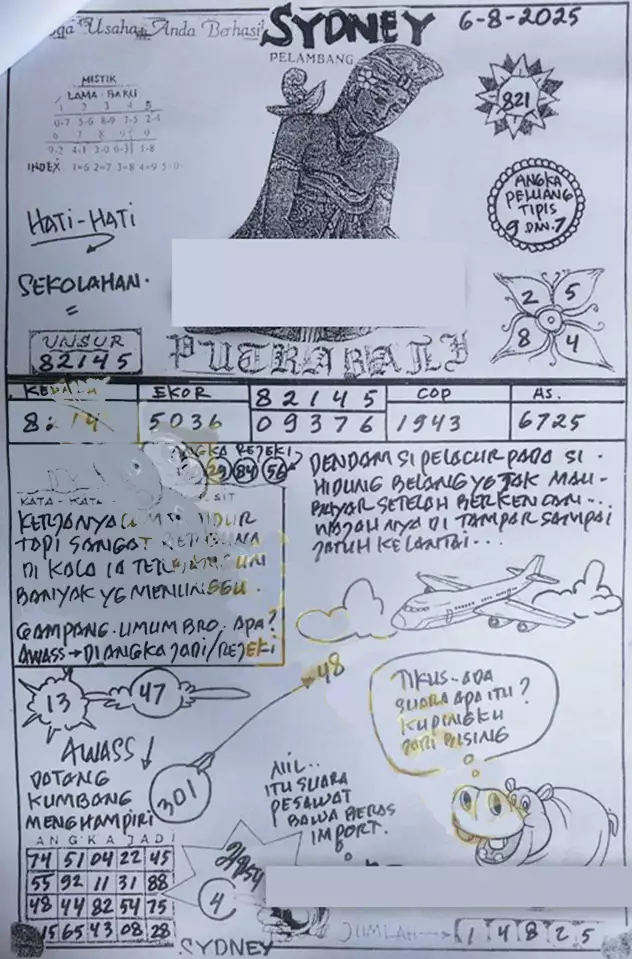 Usaha Anda Berhasil
SYDNEY
6-8-2025
PELAMBANG
MISTIK
LAMA - BARU
1 2 3 4 5
0-7 5-6 8-9 7-5 2-4
6 7 8 9 0
9-2 4-1 3-0 6-3 1-8
INDEX 1=6 2=7 3=8 4=9 5=0
821
ANGKA
PELUANG
TIPIS
9 DAN 7
HATI-HATI
SEKOLAHAN.
=
2 5
8 4
UNSUR
82145
PUTRA BALI
KEPALA EKOR 82145 COP AS.
5036 09376 1943 6725
ANGKA REJEKI
29 84 56
DENDAM SI PELACUR PADA SI
HIDUNG BELANG YG TAK MAU-
BAYAR SETELAH BERKENCAN...
WAJAHNYA DI TAMPAR SAMPAI
JATUH KELANTAI...
KATA - KATA
KERJANYA
TAPI SANGAT
DI KALA IA
BANYAK YG MENUNGGU.
GAMPANG. UMUM BRO. APA?
AWASS → DIANGKA JADI/REJEKI
13 47
48
TIKUS-ADA
SUARA APA ITU?
KUPINGKU
JADI BISING
AWASS
DATANG
KUMBANG
MENGHAMPIRI
301
ITU SUARA
PESAWAT
BAWA BERAS
IMPORT.
ANGKA JADI
74 51 04 22 45
55 92 11 31 88
48 44 82 54 75
15 65 43 08 28
4
SYDNEY
JUMLAH
1 4 8 2 5